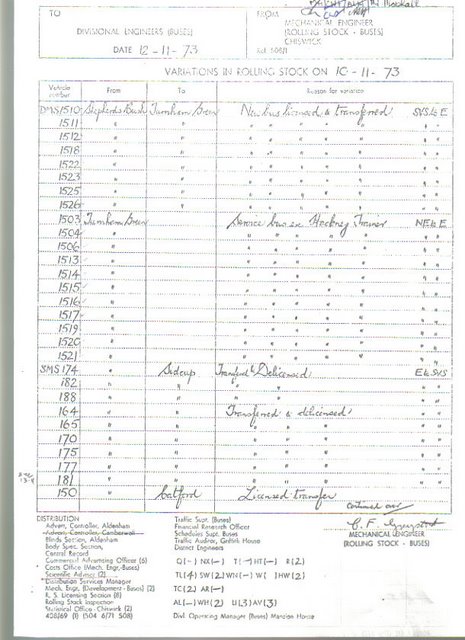 TO
FROM
MECHANICAL ENGINEER
(ROLLING STOCK - BUSES)
CHISWICK
DIVISIONAL ENGINEERS (BUSES)
DATE 12-11-73
VARIATIONS IN ROLLING STOCK ON 10-11-73
Vehicle number From To Reason for variation
DMS1510 Shepherds Bush Turnham Green New bus licensed & transferred SVS to E
1511 " " " " " " " "
1512 " " " " " " " "
1518 " " " " " " " "
1522 " " " " " " " "
1523 " " " " " " " "
1525 " " " " " " " "
1526 " " " " " " " "
1503 Turnham Green Service bus ex Hackney Trainer NE to E
1504 " " " " " " "
1506 " " " " " " "
1513 " " " " " " "
1514 " " " " " " "
1515 " " " " " " "
1516 " " " " " " "
1517 " " " " " " "
1519 " " " " " " "
1520 " " " " " " "
1521 " " " " " " "
SMS174 " Sidcup Transferred & Delicensed E to SVS
182 " " " " " " "
188 " " " " " " "
164 " " Transferred & delicensed " "
165 " " " " " " "
170 " " " " " " "
175 " " " " " " "
177 " " " " " " "
181 " " " " " " "
150 " Catford Licensed transfer
continued over
MECHANICAL ENGINEER
(ROLLING STOCK - BUSES)
DISTRIBUTION
Advert. Controller, Aldenham
Advert. Controller, Camberwell
Blinds Section, Aldenham
Body Spec. Section,
Central Record
Commercial Advertising Officer (6)
Costs Office (Mech. Engr.-Buses)
Scientific Adviser (2)
Distribution Services Manager
Mech. Engr. (Development - Buses) (2)
R. S. Licensing Section (8)
Rolling Stock Inspection
Statistical Office - Chiswick (2)
408/69 (1) (504 6/71 508)
Traffic Supt. (Buses)
Financial Research Officer
Schedules Supt. Buses
Traffic Auditor, Griffith House
District Engineers
Q(-) NX(-) T(-) HT(-) R(2)
TL(4) SW(2) WN(-) W( ) HW(2)
TC(2) AR(-)
AL(-) WH(2) U(3) AV(3)
Divl. Operating Manager (Buses) Mansion House